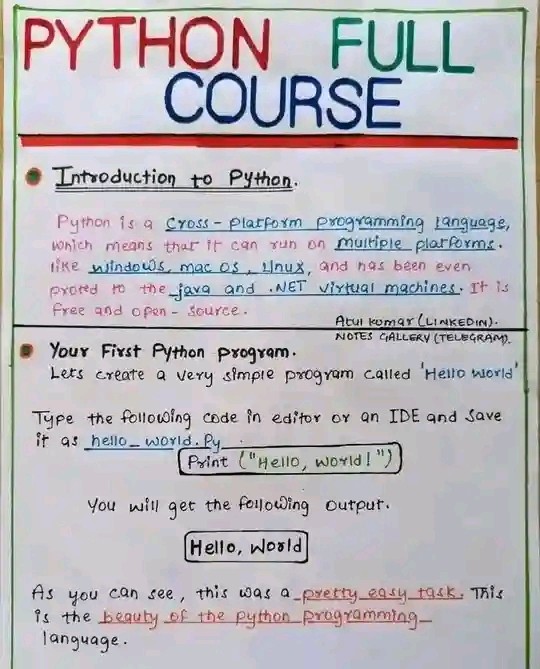 PYTHON FULL
COURSE
Introduction to Python.
Python is a cross-platform programming language,
which means that it can run on multiple platforms.
like windows, mac os, Linux, and has been even
proted to the java and .NET virtual machines. It is
free and open-source.
Atul kumar (LINKEDIN).
NOTES GALLERY (TELEGRAM).
Your First Python program.
Lets create a very simple program called 'Hello World'
Type the following code in editor or an IDE and save
it as hello_world.Py
Print ("Hello, World!")
You will get the following output.
Hello, World
As you can see, this was a pretty easy task. This
is the beauty of the python programming
language.